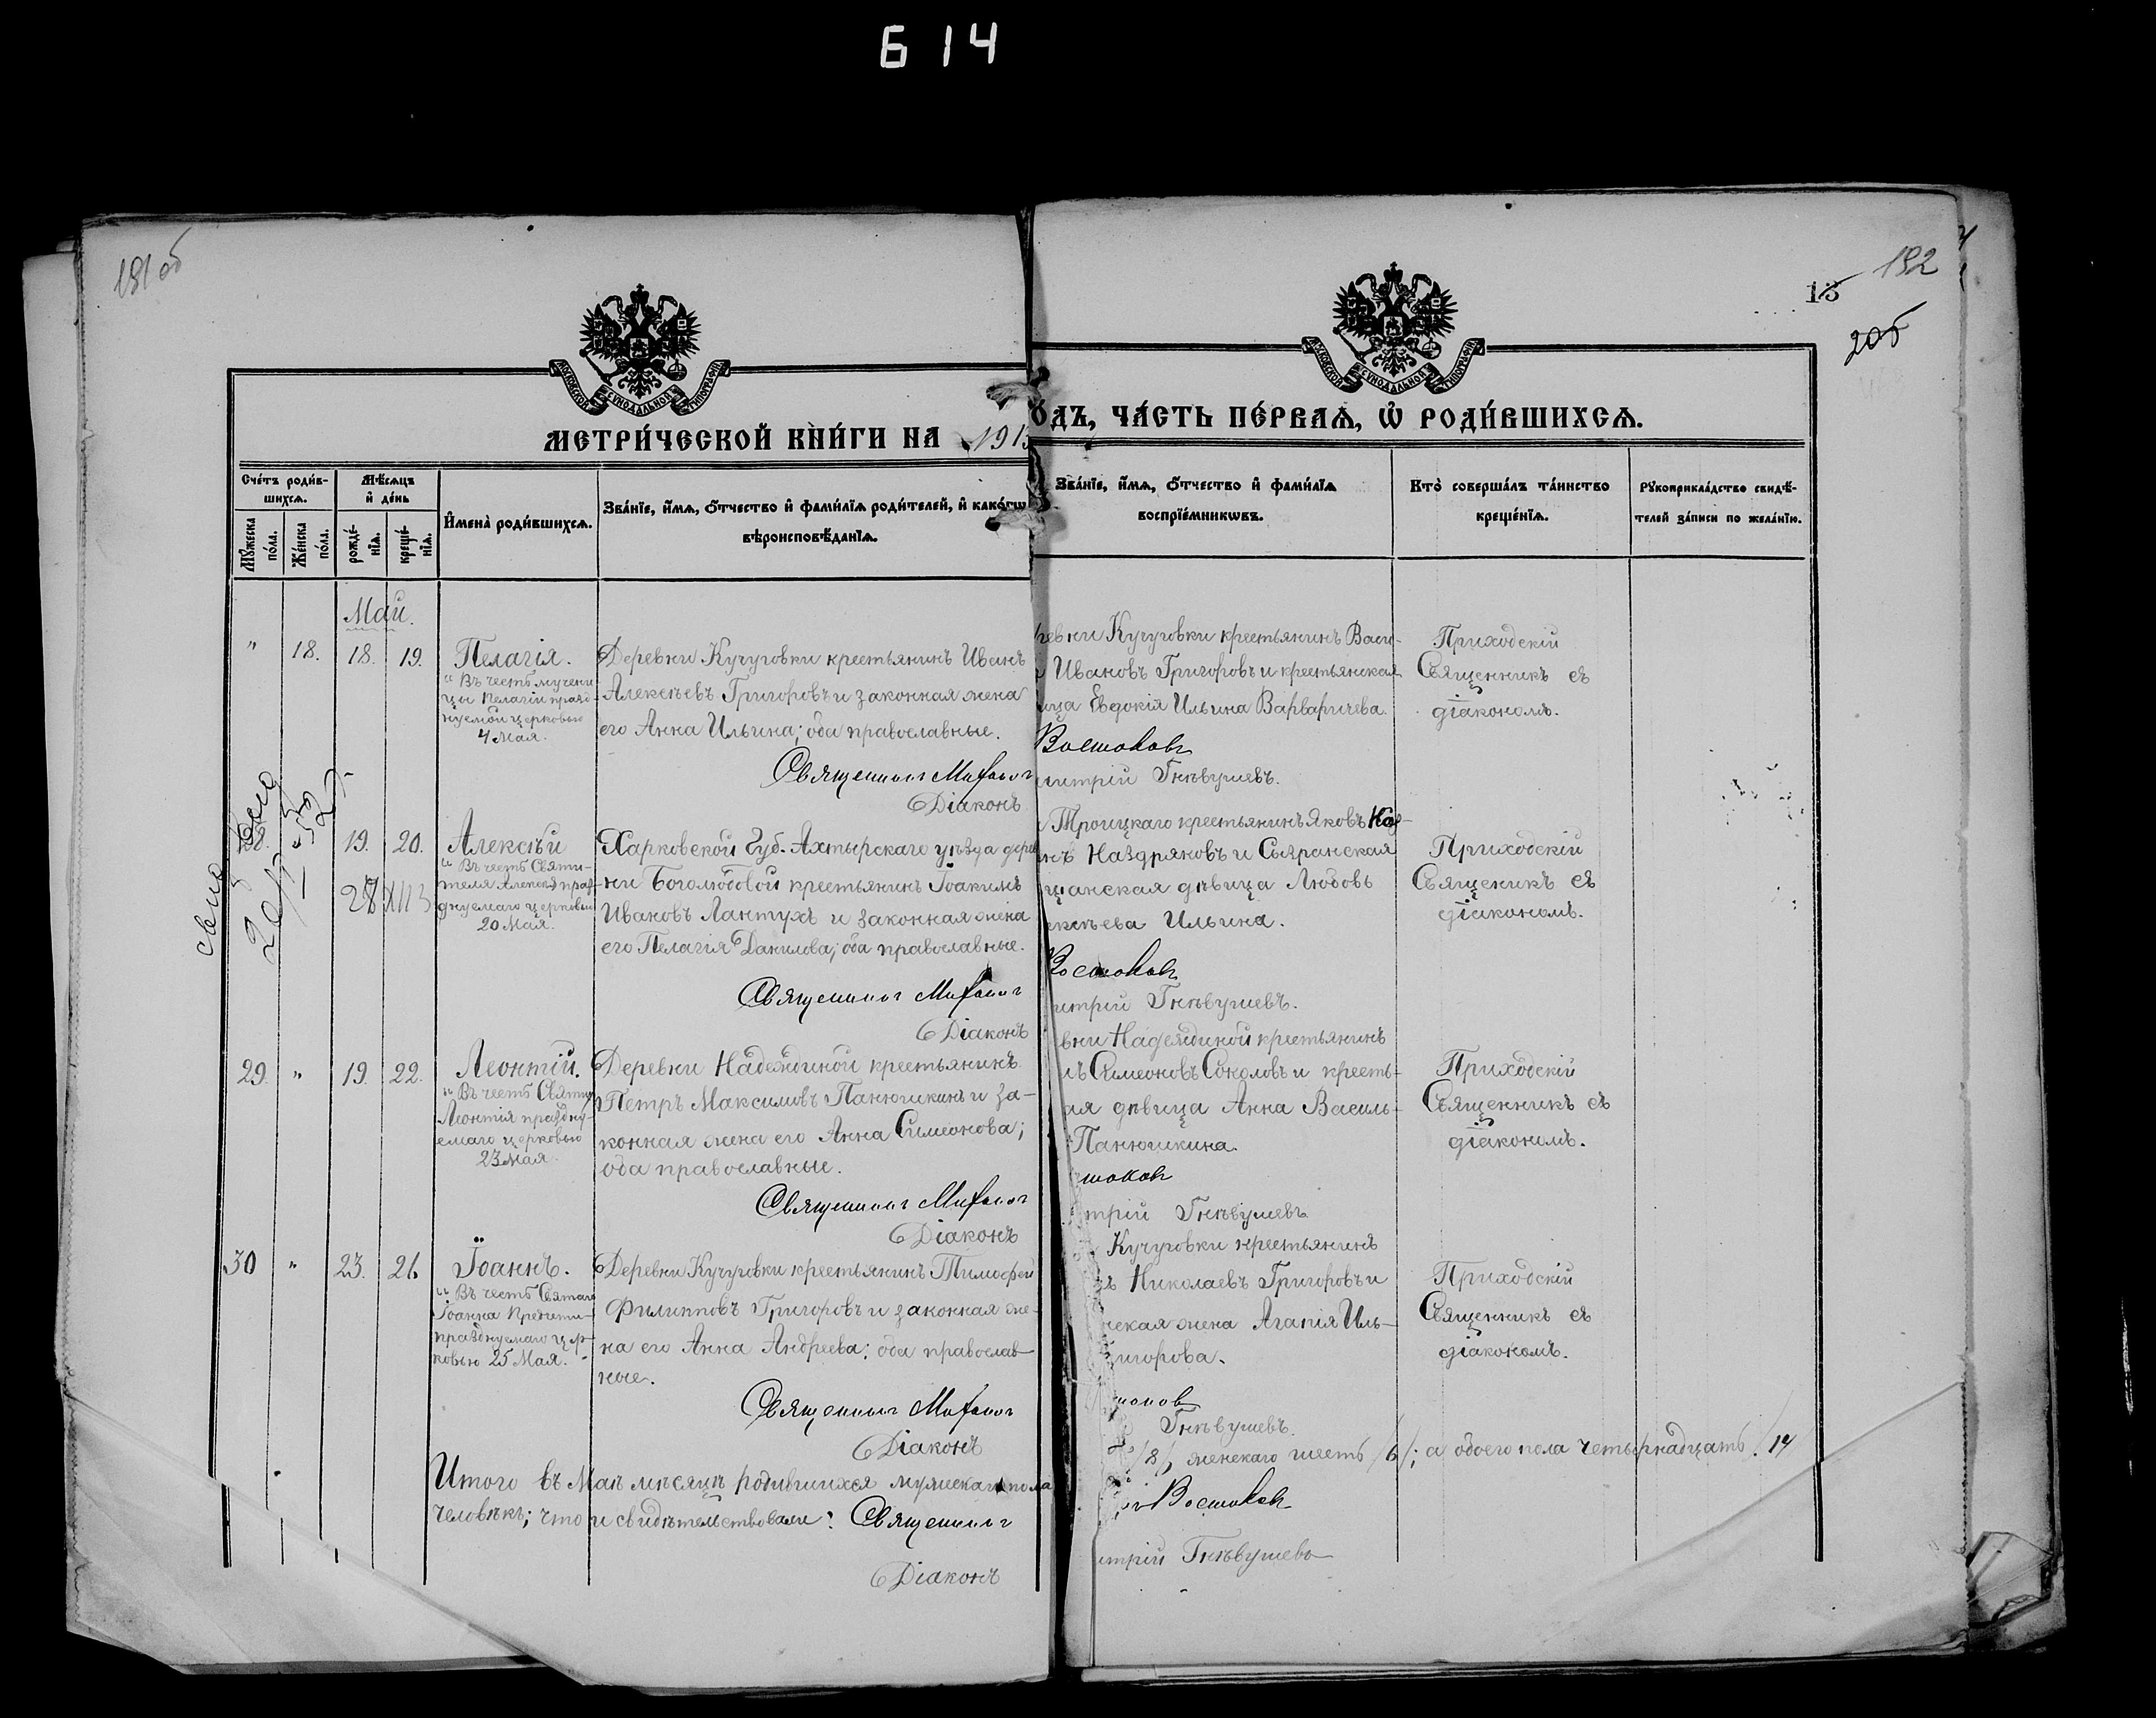 Б 14
181 об
182
15
205
МОСКОВСКОЙ СУНОДАЛЬНОЙ ТИПОГРАФІИ
МОСКОВСКОЙ СУНОДАЛЬНОЙ ТИПОГРАФІИ
МЕТРИ́ЧЕСКОЙ КНИ́ГИ НА 191
ОДЪ, ЧА́СТЬ ПЕ́РВАѦ, Ѡ҆ РОДИ́ВШИХСѦ.
Сче́тъ роди́в-
шихсѧ.
Мꙋ́жеска по́ла.
Же́нска по́ла.
Мѣ́сѧцъ
и҆ де́нь
рожде́-
нїѧ.
креще́-
нїѧ.
И҆мена̀ роди́вшихсѧ.
Зва́нїе, и҆́мѧ, ѻ҆́тчество и҆ фами́лїѧ роди́телей, и҆ како́гѡ
вѣроисповѣ́данїѧ.
Зва́нїе, и҆́мѧ, ѻ҆́тчество и҆ фами́лїѧ
воспрїе́мникѡвъ.
Кто̀ соверша́лъ та́инство
креще́нїѧ.
Рꙋкоприкла́дство свидѣ́-
телей за́писи по жела́нїю.
Май.
" 18. 18. 19.
Пелагія.
" Въ честь мучени
цы Пелагіи празд-
нуемой церковью
4 Мая.
Деревни Кучуговки крестьянинъ Иванъ
Алексѣевъ Григоровъ и законная жена
его Анна Ильина; оба православные.
Священникъ Михаилъ
Діаконъ
ревни Кучуговки крестьянинъ Васи-
Ивановъ Григоровъ и крестьянская
ица Евдокія Ильина Варваричева.
Востоковъ
митрій Гнѣвушевъ.
Приходскій
Священникъ съ
діакономъ.
19. 20.
Алексѣй
" Въ честь Святи-
теля Алексѣя празд-
днуемаго церковью
20 Мая.
Харковской Губ. Ахтырскаго уѣзда дерев
ни Боголюбовой крестьянинъ Іоакимъ
Ивановъ Лантухъ и законная жена
его Пелагія Данилова; оба православные.
Священникъ Михаилъ
Діаконъ
Троицкаго крестьянинъ Яковъ
нъ Наздряковъ и Сызранская
щанская дѣвица Любовь
ексѣева Ильина.
Востоковъ
итрій Гнѣвушевъ.
Приходскій
Священикъ съ
діакономъ.
29. " 19. 22.
Леонтій.
" Въ честь Святаго
Леонтія праздну-
емаго церковью
23 Мая.
Деревни Надеждиной крестьянинъ
Петръ Максимовъ Панюшкинъ и за-
конная жена его Анна Симеонова;
оба православные.
Священникъ Михаилъ
Діаконъ
вни Надеждиной крестьянинъ
лъ Симеоновъ Соколовъ и кресть-
ая дѣвица Анна Василь-
Панюшкина.
стоковъ
трій Гнѣвушевъ
Приходскій
Священникъ съ
діакономъ.
30 " 23. 26.
Іоаннъ.
" Въ честь Святаго
Іоанна Предтечи-
празднуемаго цер-
ковью 25 Мая.
Деревни Кучуговки крестьянинъ Тимофей
Филипповъ Григоровъ и законная же-
на его Анна Андреева; оба православ-
ные.
Священникъ Михаилъ
Діаконъ
Кучуговки крестьянинъ
ъ Николаевъ Григоровъ и
нская жена Агапія Иль-
игорова.
токовъ
Гнѣвушевъ.
Приходскій
Священникъ съ
діакономъ.
Итого въ Маѣ мѣсяцѣ родившихся мужскаго пола
/8/, женскаго шесть /6/; а обоего пола четырнадцать /14
человѣкъ; что и свидѣтельствовали: Священникъ
Востоковъ
Діаконъ
итрій Гнѣвушевъ